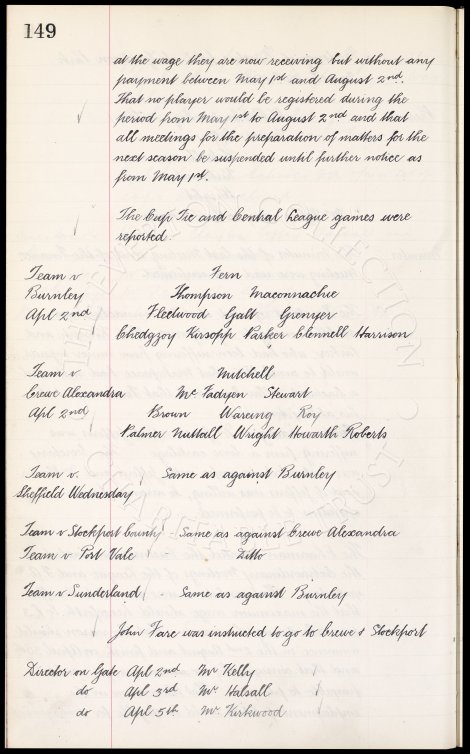 149
at the wage they are now receiving but without any
payment between May 1st and August 2nd.
That no player would be registered during the
period from May 1st to August 2nd and that
all meetings for the preparation of matters for the
next season be suspended until further notice as
from May 1st.
The Cup Tie and Central League games were
reported.
Team v Fern
Burnley Thompson Maconnachie
Apl 2nd Fleetwood Galt Grenyer
Chedgzoy Kirsopp Parker Clennell Harrison
Team v Mitchell
Crewe Alexandra McFadyen Stewart
Apl 2nd Brown Wareing Roy
Palmer Nuttall Wright Howarth Roberts
Team v. Same as against Burnley
Sheffield Wednesday
Team v Stockport County Same as against Crewe Alexandra
Team v Port Vale Ditto
Team v Sunderland Same as against Burnley
John Fare was instructed to go to Crewe & Stockport
Director on Gate Apl 2nd Mr Kelly
do Apl 3rd Mr Halsall
do Apl 5th Mr Kirkwood